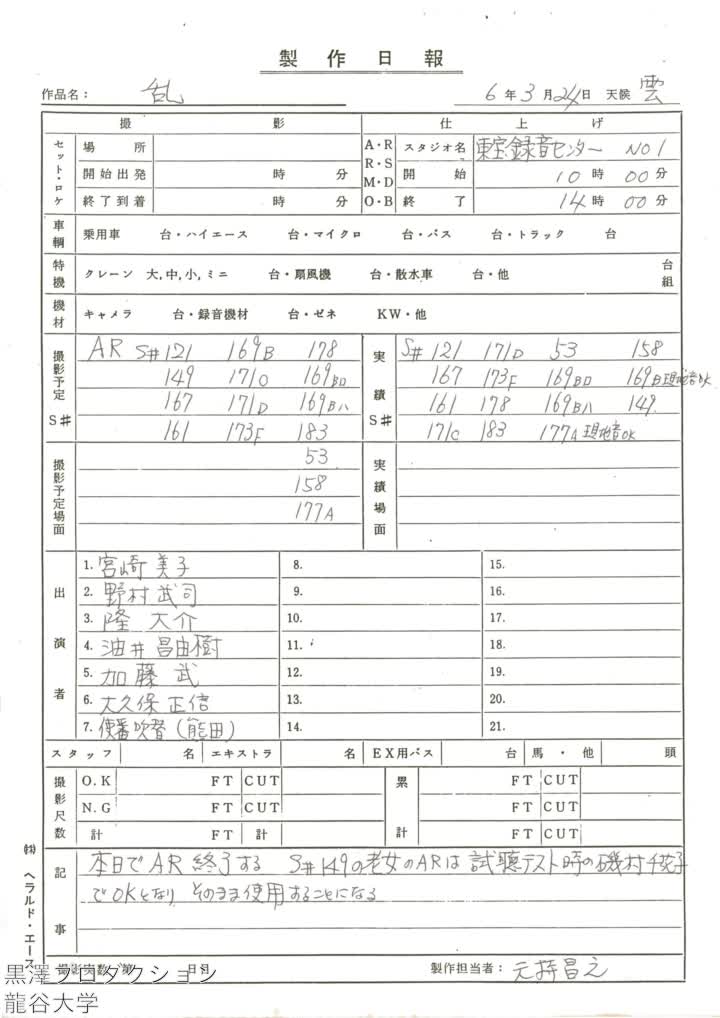 製作日報
作品名： 乱 6年3月24日 天候 雲
撮影 仕上げ
セット・ロケ 場所 A・R R・S M・D O・B スタジオ名 東宝録音センター NO1
開始出発 時 分 開始 10時00分
終了到着 時 分 終了 14時00分
車輌 乗用車 台・ハイエース 台・マイクロ 台・バス 台・トラック 台
特機 クレーン 大,中,小,ミニ 台・扇風機 台・散水車 台・他 台組
機材 キャメラ 台・録音機材 台・ゼネ KW・他
撮影予定 S# AR S#121 169B 178 実績 S# S#121 171D 53 158
149 171C 169Bロ 167 173F 169Bロ 169B現地音OK
167 171D 169Bハ 161 178 169Bハ 149
161 173F 183 171C 183 177A 現地音OK
撮影予定場面 53 実績場面
158
177A
出演者 1. 宮崎美子 8. 15.
2. 野村武司 9. 16.
3. 隆 大介 10. 17.
4. 油井昌由樹 11. 18.
5. 加藤 武 12. 19.
6. 大久保正信 13. 20.
7. 使番吹替(熊田) 14. 21.
スタッフ 名 エキストラ 名 EX用バス 台 馬・他 頭
撮影尺数 O.K FT CUT 累計 FT CUT
N.G FT CUT FT CUT
計 FT 計 FT CUT
記事 本日でAR終了する S#149の老女のARは試聴テスト時の磯村千花子
でOKとなり そのまま使用することになる
撮影実数 第 日目 製作担当者： 元持昌之
㈱ヘラルド・エース
黒澤プロダクション
龍谷大学